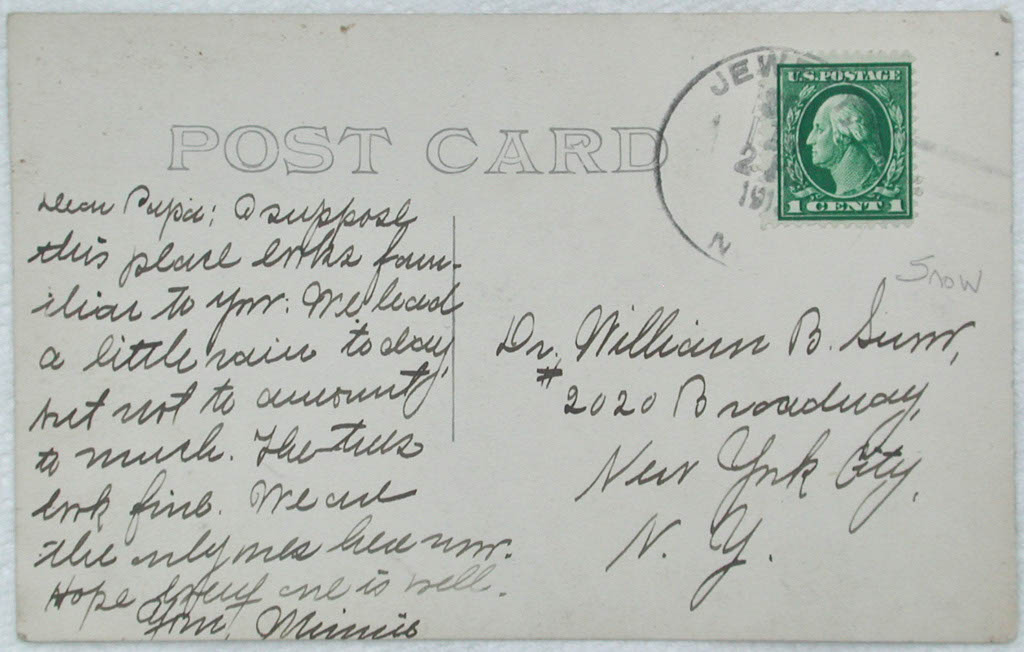 POST CARD
JEWE
2
191
N
U.S. POSTAGE
1 CENT 1
Snow
Dear Papa; I suppose
this place looks fam-
iliar to you. We had
a little rain today,
but not to amount
to much. The trees
look fine. We are
the only ones here now.
Hope every one is well.
Your, Minnie
Dr. William B.
# 2020 Broadway,
New York City,
N. Y.